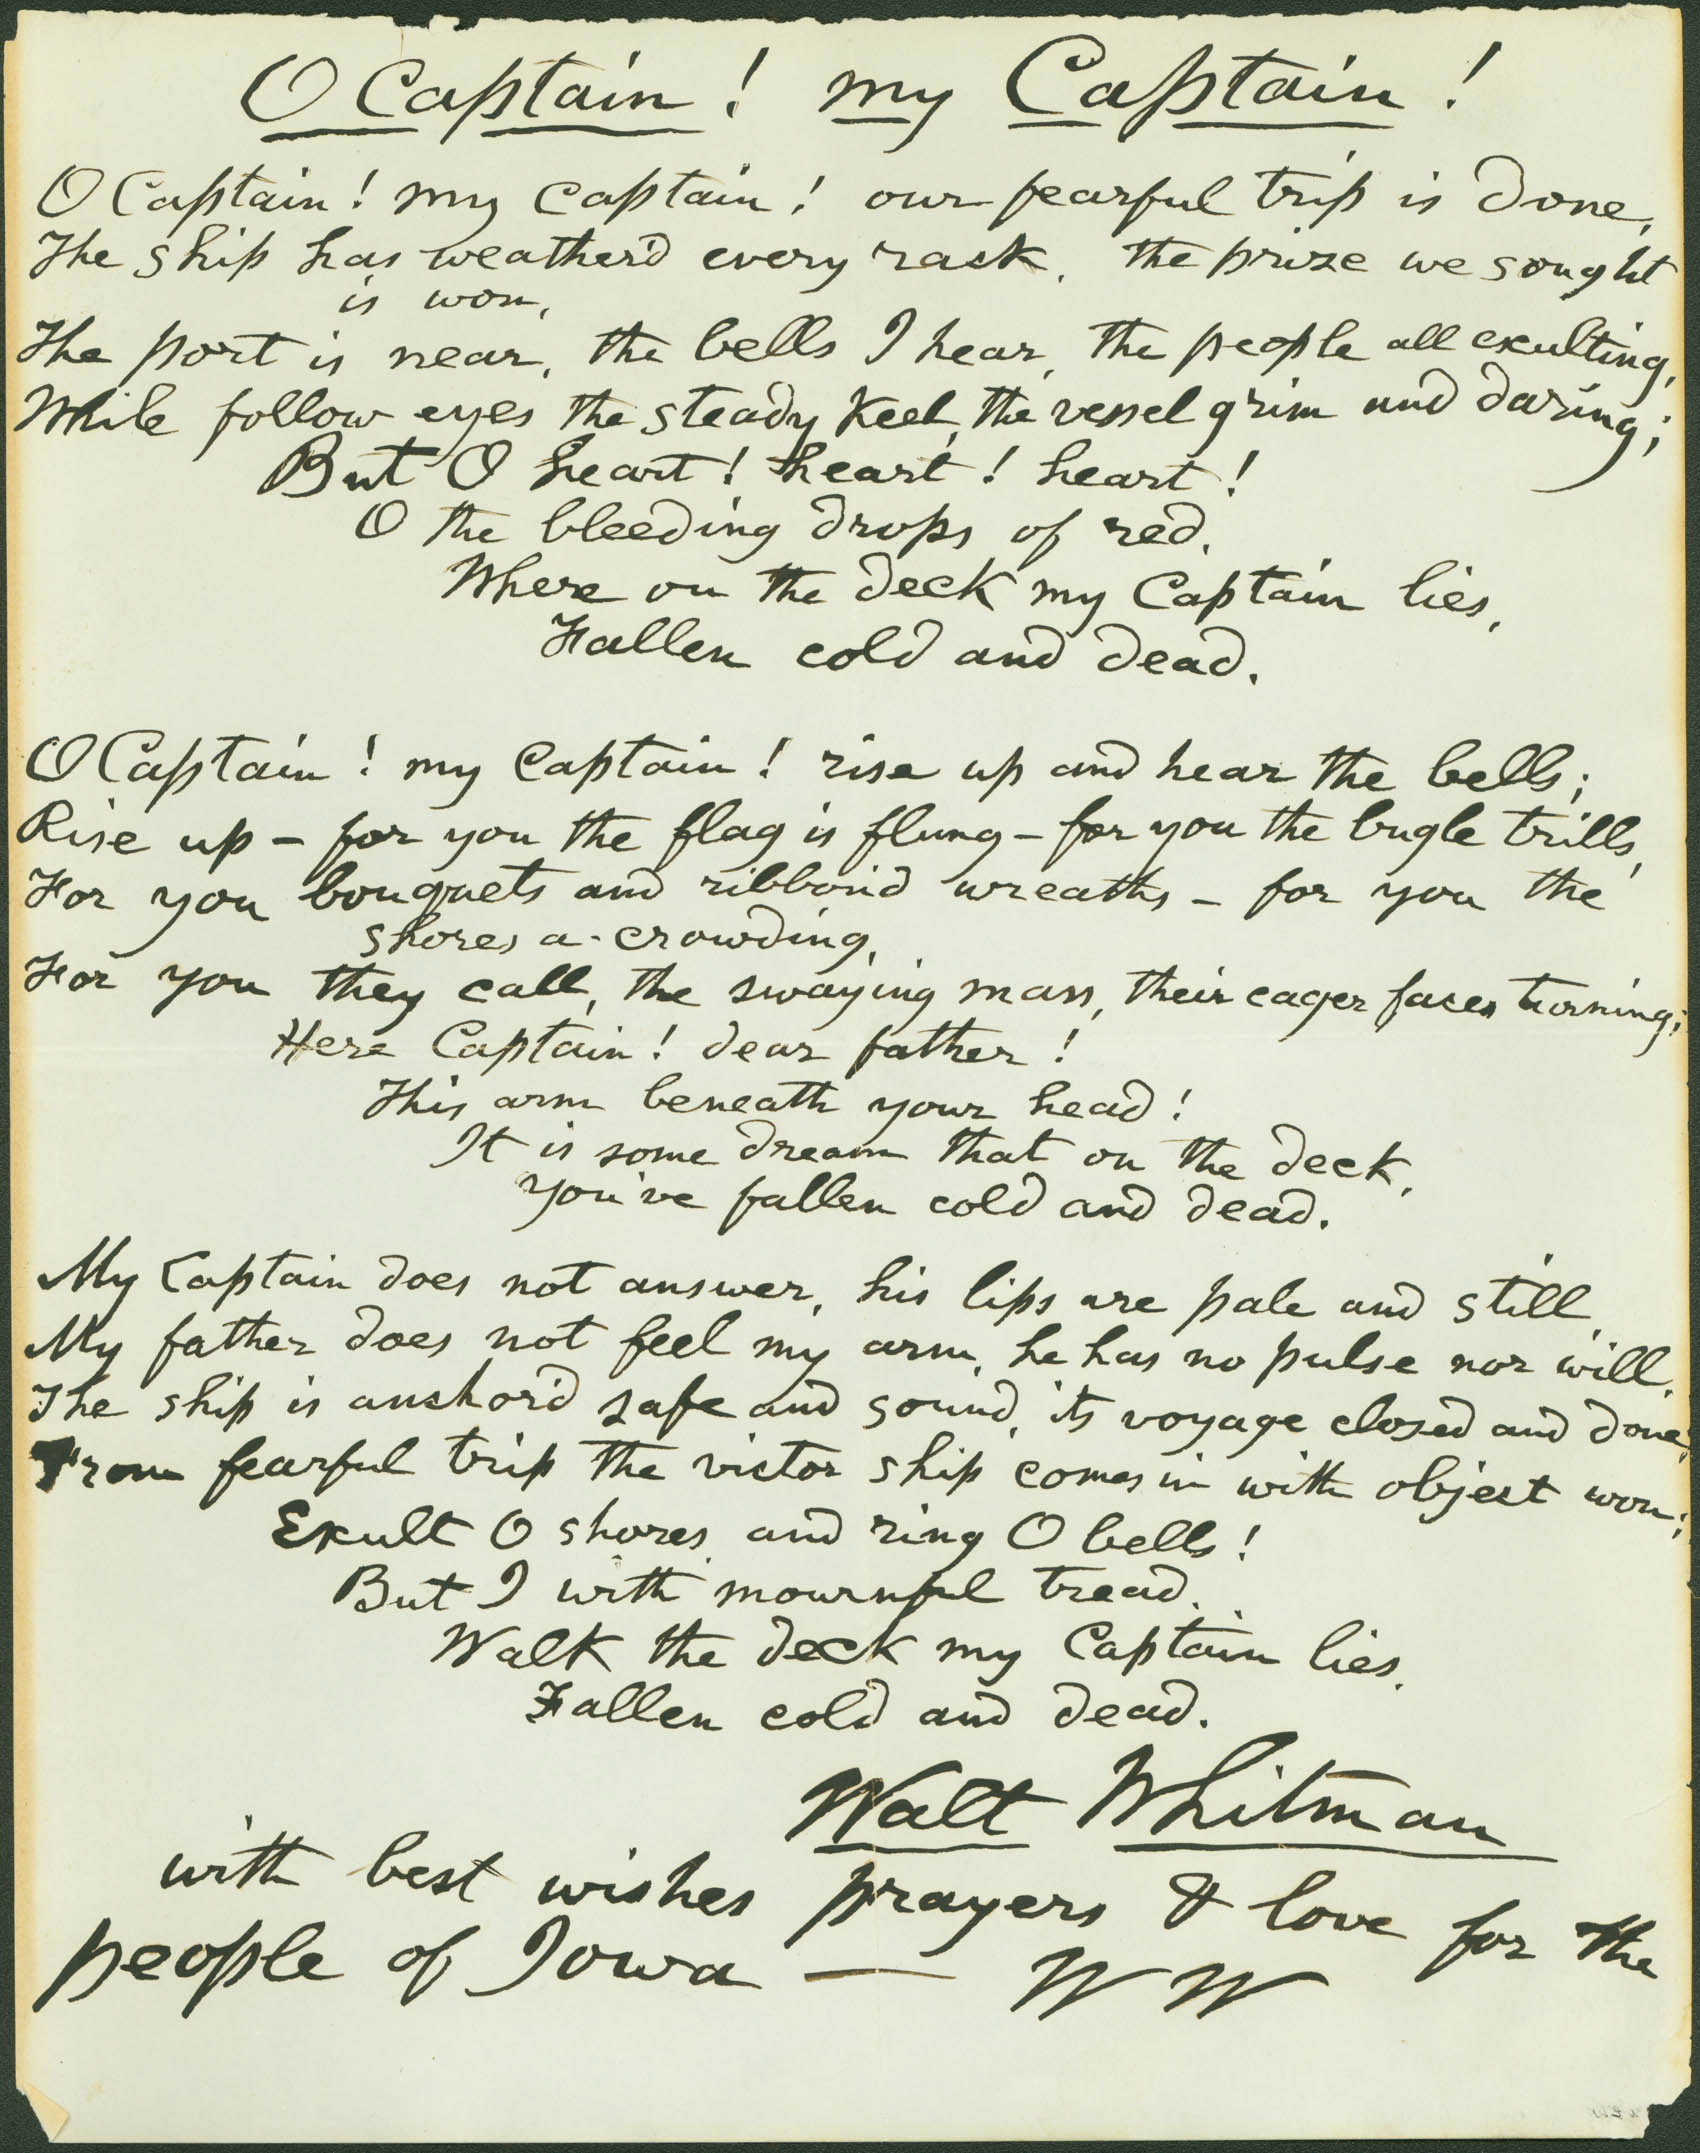 O Captain! my Captain!
O Captain! my captain! our fearful trip is done,
The ship has weather'd every rack, the prize we sought
is won,
The port is near, the bells I hear, the people all exulting,
While follow eyes the steady keel, the vessel grim and daring;
But O heart! heart! heart!
O the bleeding drops of red,
Where on the deck my Captain lies,
Fallen cold and dead.
O Captain! my captain! rise up and hear the bells;
Rise up - for you the flag is flung - for you the bugle trills,
For you bouquets and ribbon'd wreaths - for you the
shores a-crowding,
For you they call, the swaying mass, their eager faces turning;
Here Captain! dear father!
This arm beneath your head!
It is some dream that on the deck,
You've fallen cold and dead.
My Captain does not answer, his lips are pale and still,
My father does not feel my arm, he has no pulse nor will,
The ship is anchor'd safe and sound, its voyage closed and done,
From fearful trip the victor ship comes in with object won;
Exult O shores, and ring O bells!
But I with mournful tread,
Walk the deck my Captain lies,
Fallen cold and dead.
Walt Whitman
with best wishes prayers & love for the
people of Iowa — W W